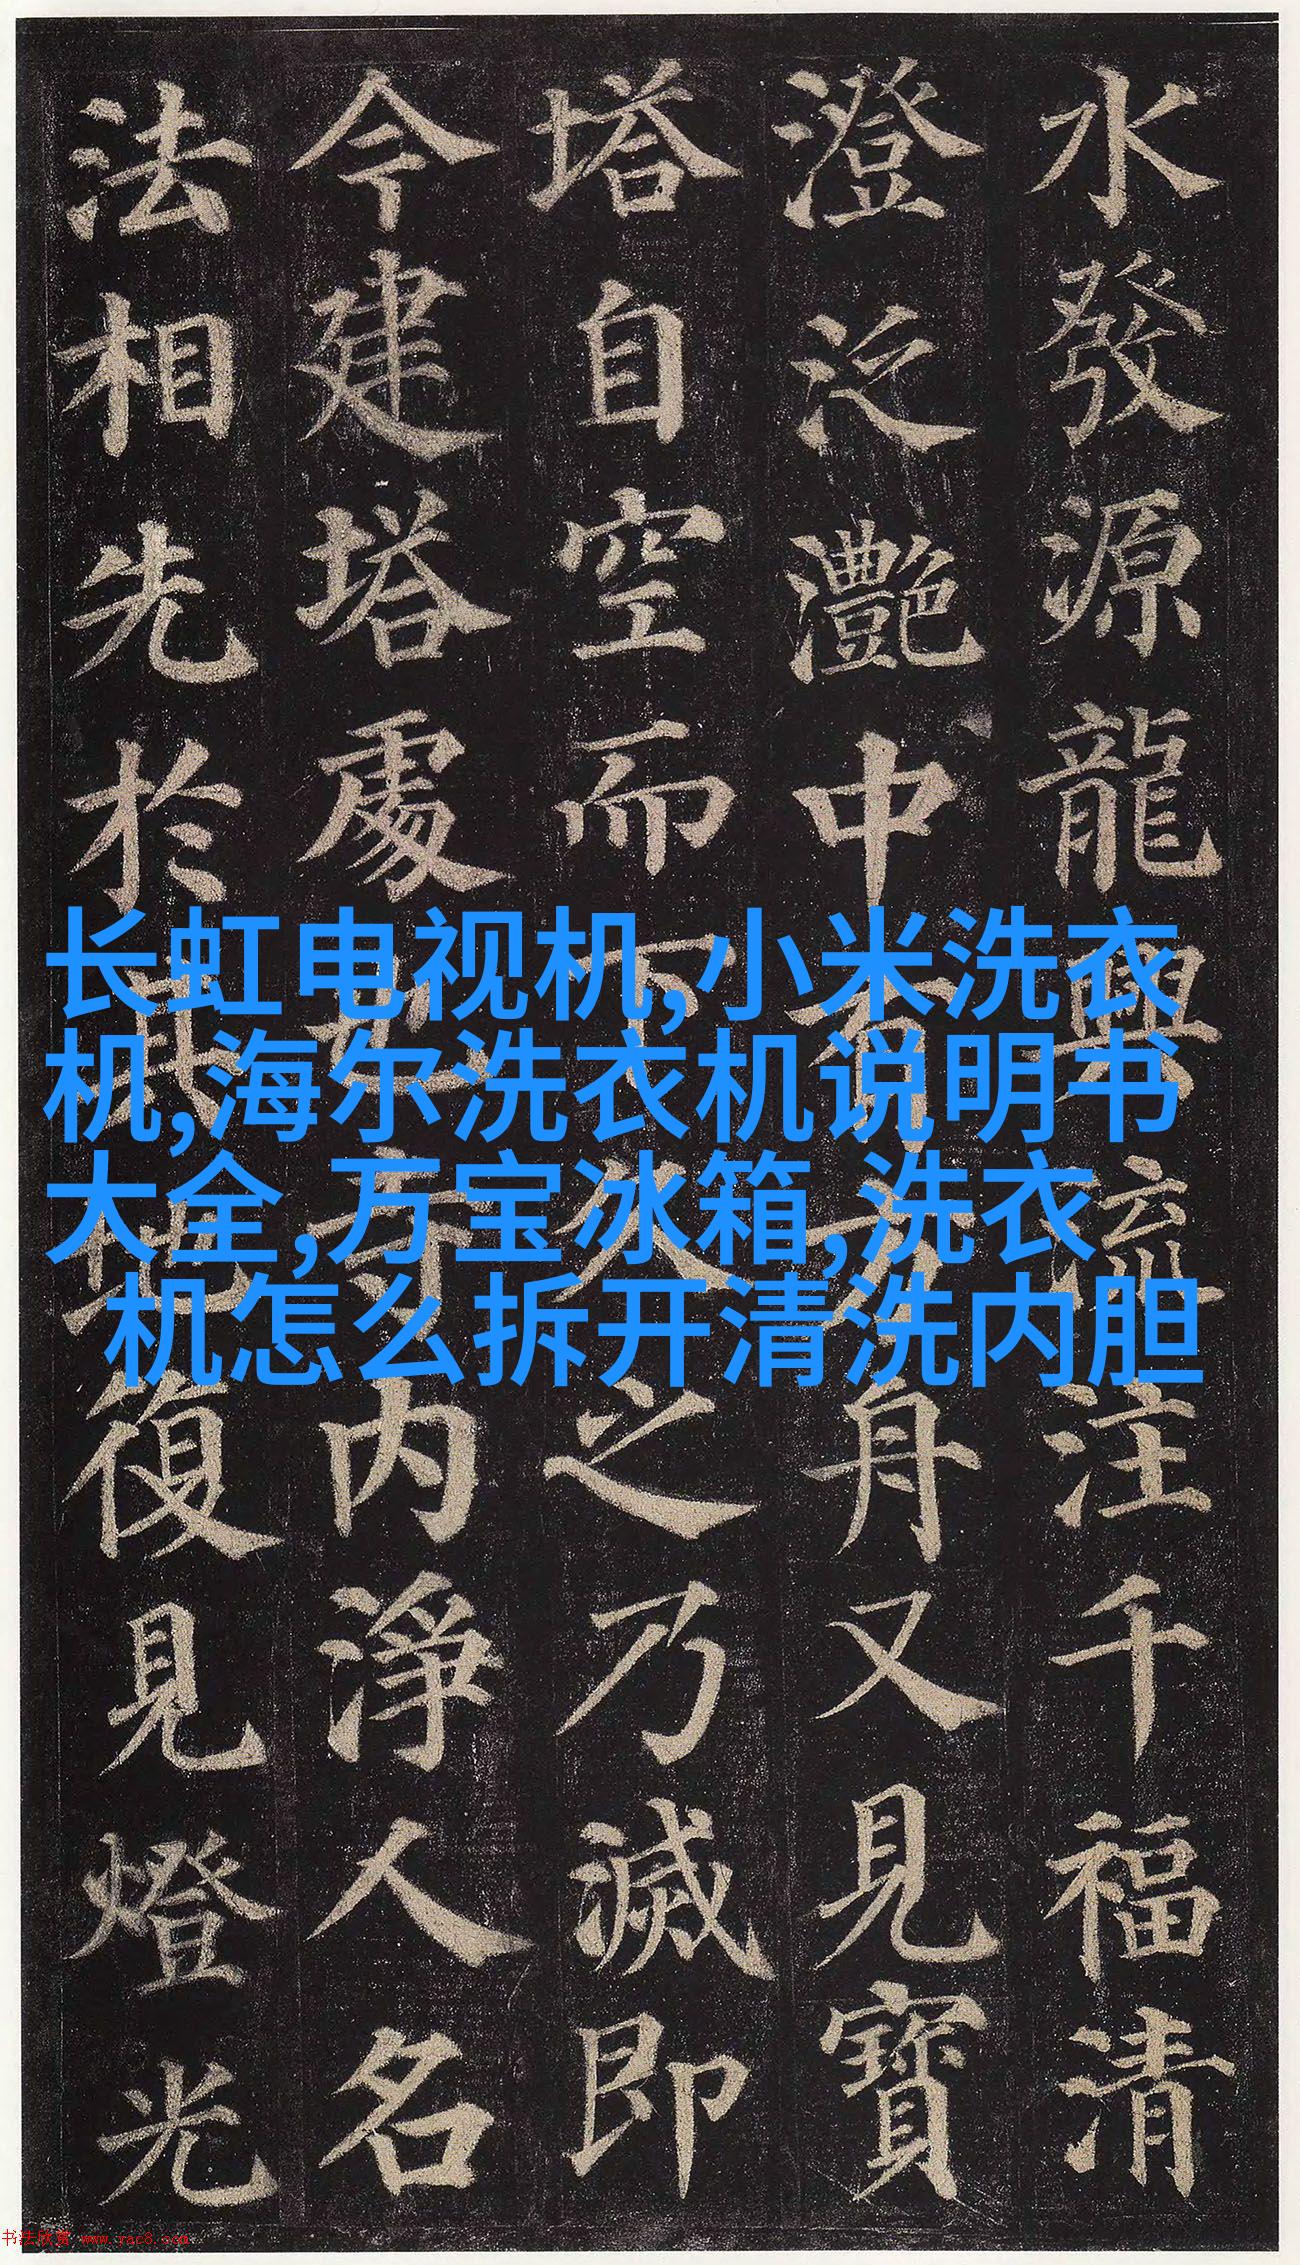 水發源龍興流注千福清
澄泛灧中有方舟又見寶
塔自空而下久之乃滅即
今建塔處也寺内淨人名
法相先於其地復見燈光
长虹电视机,小米洗衣
机,海尔洗衣机说明书
大全,万宝冰箱,洗衣
机怎么拆开清洗内胆
书法欣赏 www.yac8.com